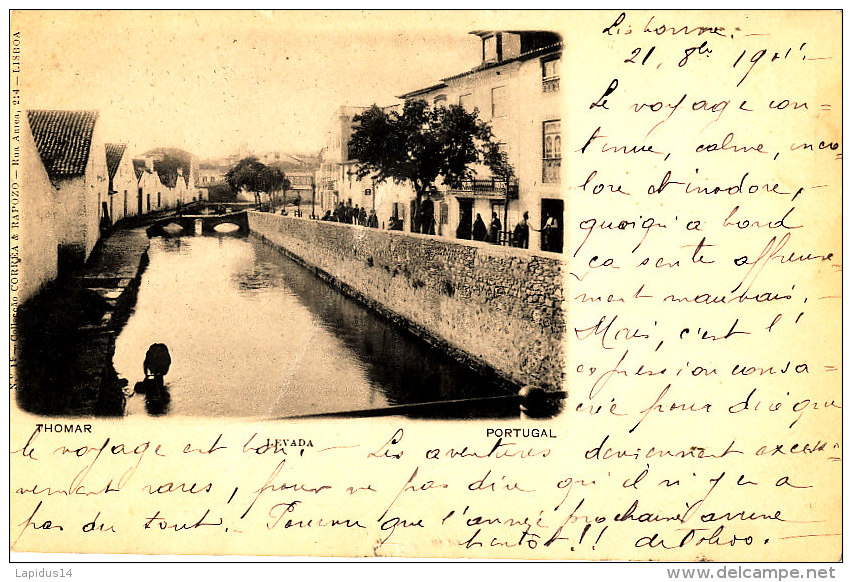 Lisbonne. -
21, 8bre 1901. -
Le voyage con=
tinue, calme, inco=
lore et inodore, -
quoiqu'a bord
ça sente affreuse=
ment mauvais. -
Mais, c'est l'
expression consa=
crée pour dire que
le voyage est bon. - Les aventures deviennent excessi=
vement rares, pour ne pas dire qu'il n'y en a
pas du tout. - Pourvu que l'année prochaine arrive
bientot!!
Nº 14 - Collecção CORRÊA & RAPOZO - Rua Aurea, 214 - LISBOA
THOMAR
LEVADA
PORTUGAL
Lapidus14
http://www.delcampe.net